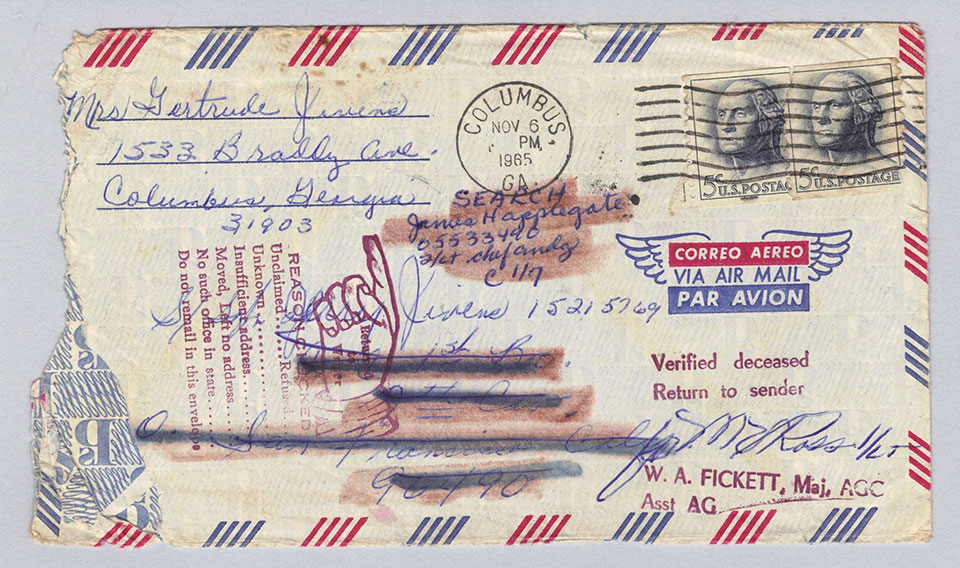 Mrs Gertrude Jivens
1533 Bradly Ave.
Columbus, Georgia
31903
COLUMBUS,
NOV 6
PM
1965
GA.
5¢ U.S.POSTAG
5¢ U.S.POSTAGE
SEARCH
James H applegate
05533490
C 1/7
CORREO AEREO
VIA AIR MAIL
PAR AVION
Jivens 15215769
1st Bn
San Francisco Calif
96490
REASON CHECKED
Unclaimed Refused
Unknown
Insufficient address
Moved, Left no address
No such office in state
Do not remail in this envelope
Returned
to
Writer
Verified deceased
Return to sender
Ross 1/Lt
W. A. FICKETT, Maj, AGC
Asst AG